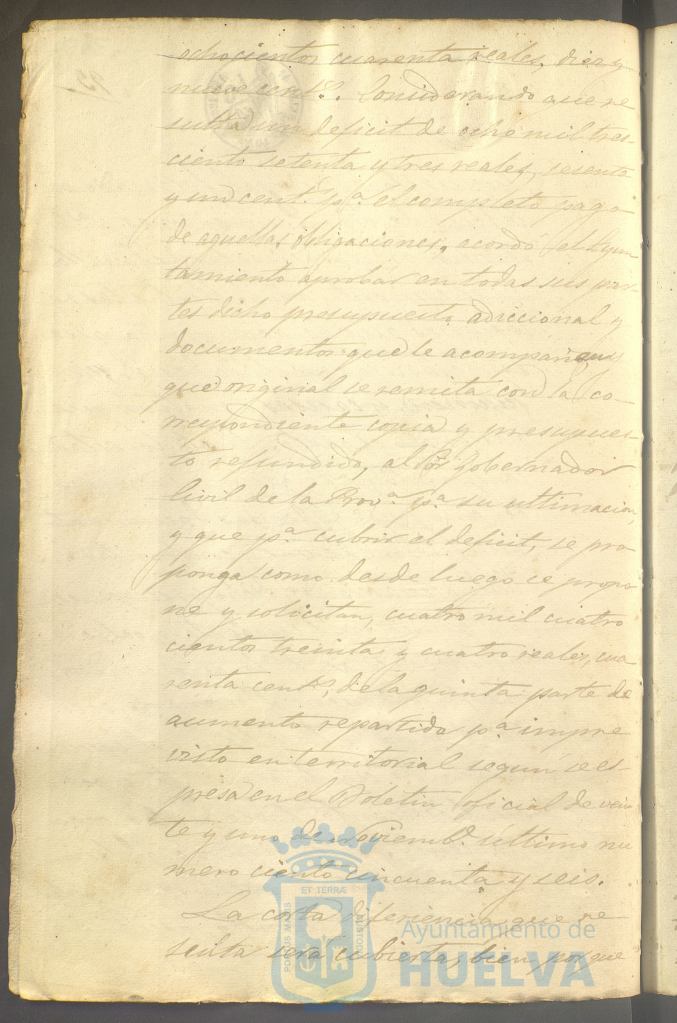 ochocientos cuarenta reales, diez y
nueve cent.s. Considerando que re
sulta un deficit de ocho mil tres-
ciento setenta y tres reales, sesenta
y un cent.s p.a el completo pago
de aquellas obligaciones, acordó el Ayun
tamiento aprobar en todas sus par-
tes dicho presupuesto adiccional y
documentos que le acompañan y
que original se remita con la co-
rrespondiente copia y presupues-
to refundido, al Sor Gobernador
Civil de la Prov.a p.a su ultimacion,
y que p.a cubrir el deficit, se pro
ponga como desde luego se propo
ne y solicitan, cuatro mil cuatro
cientos treinta y cuatro reales, cua
renta cent.s, de la quinta parte de
aumento repartido p.a impre
visto en territorial segun se es
presa en el Boletin oficial de vein
te y uno de Noviemb.e último nu
mero ciento cincuenta y seis.
La corta diferiencia que re-
sulta será cubierta, bien porque
PORTUS MARIS
ET TERRÆ
CUSTODIA
Ayuntamiento de
HUELVA